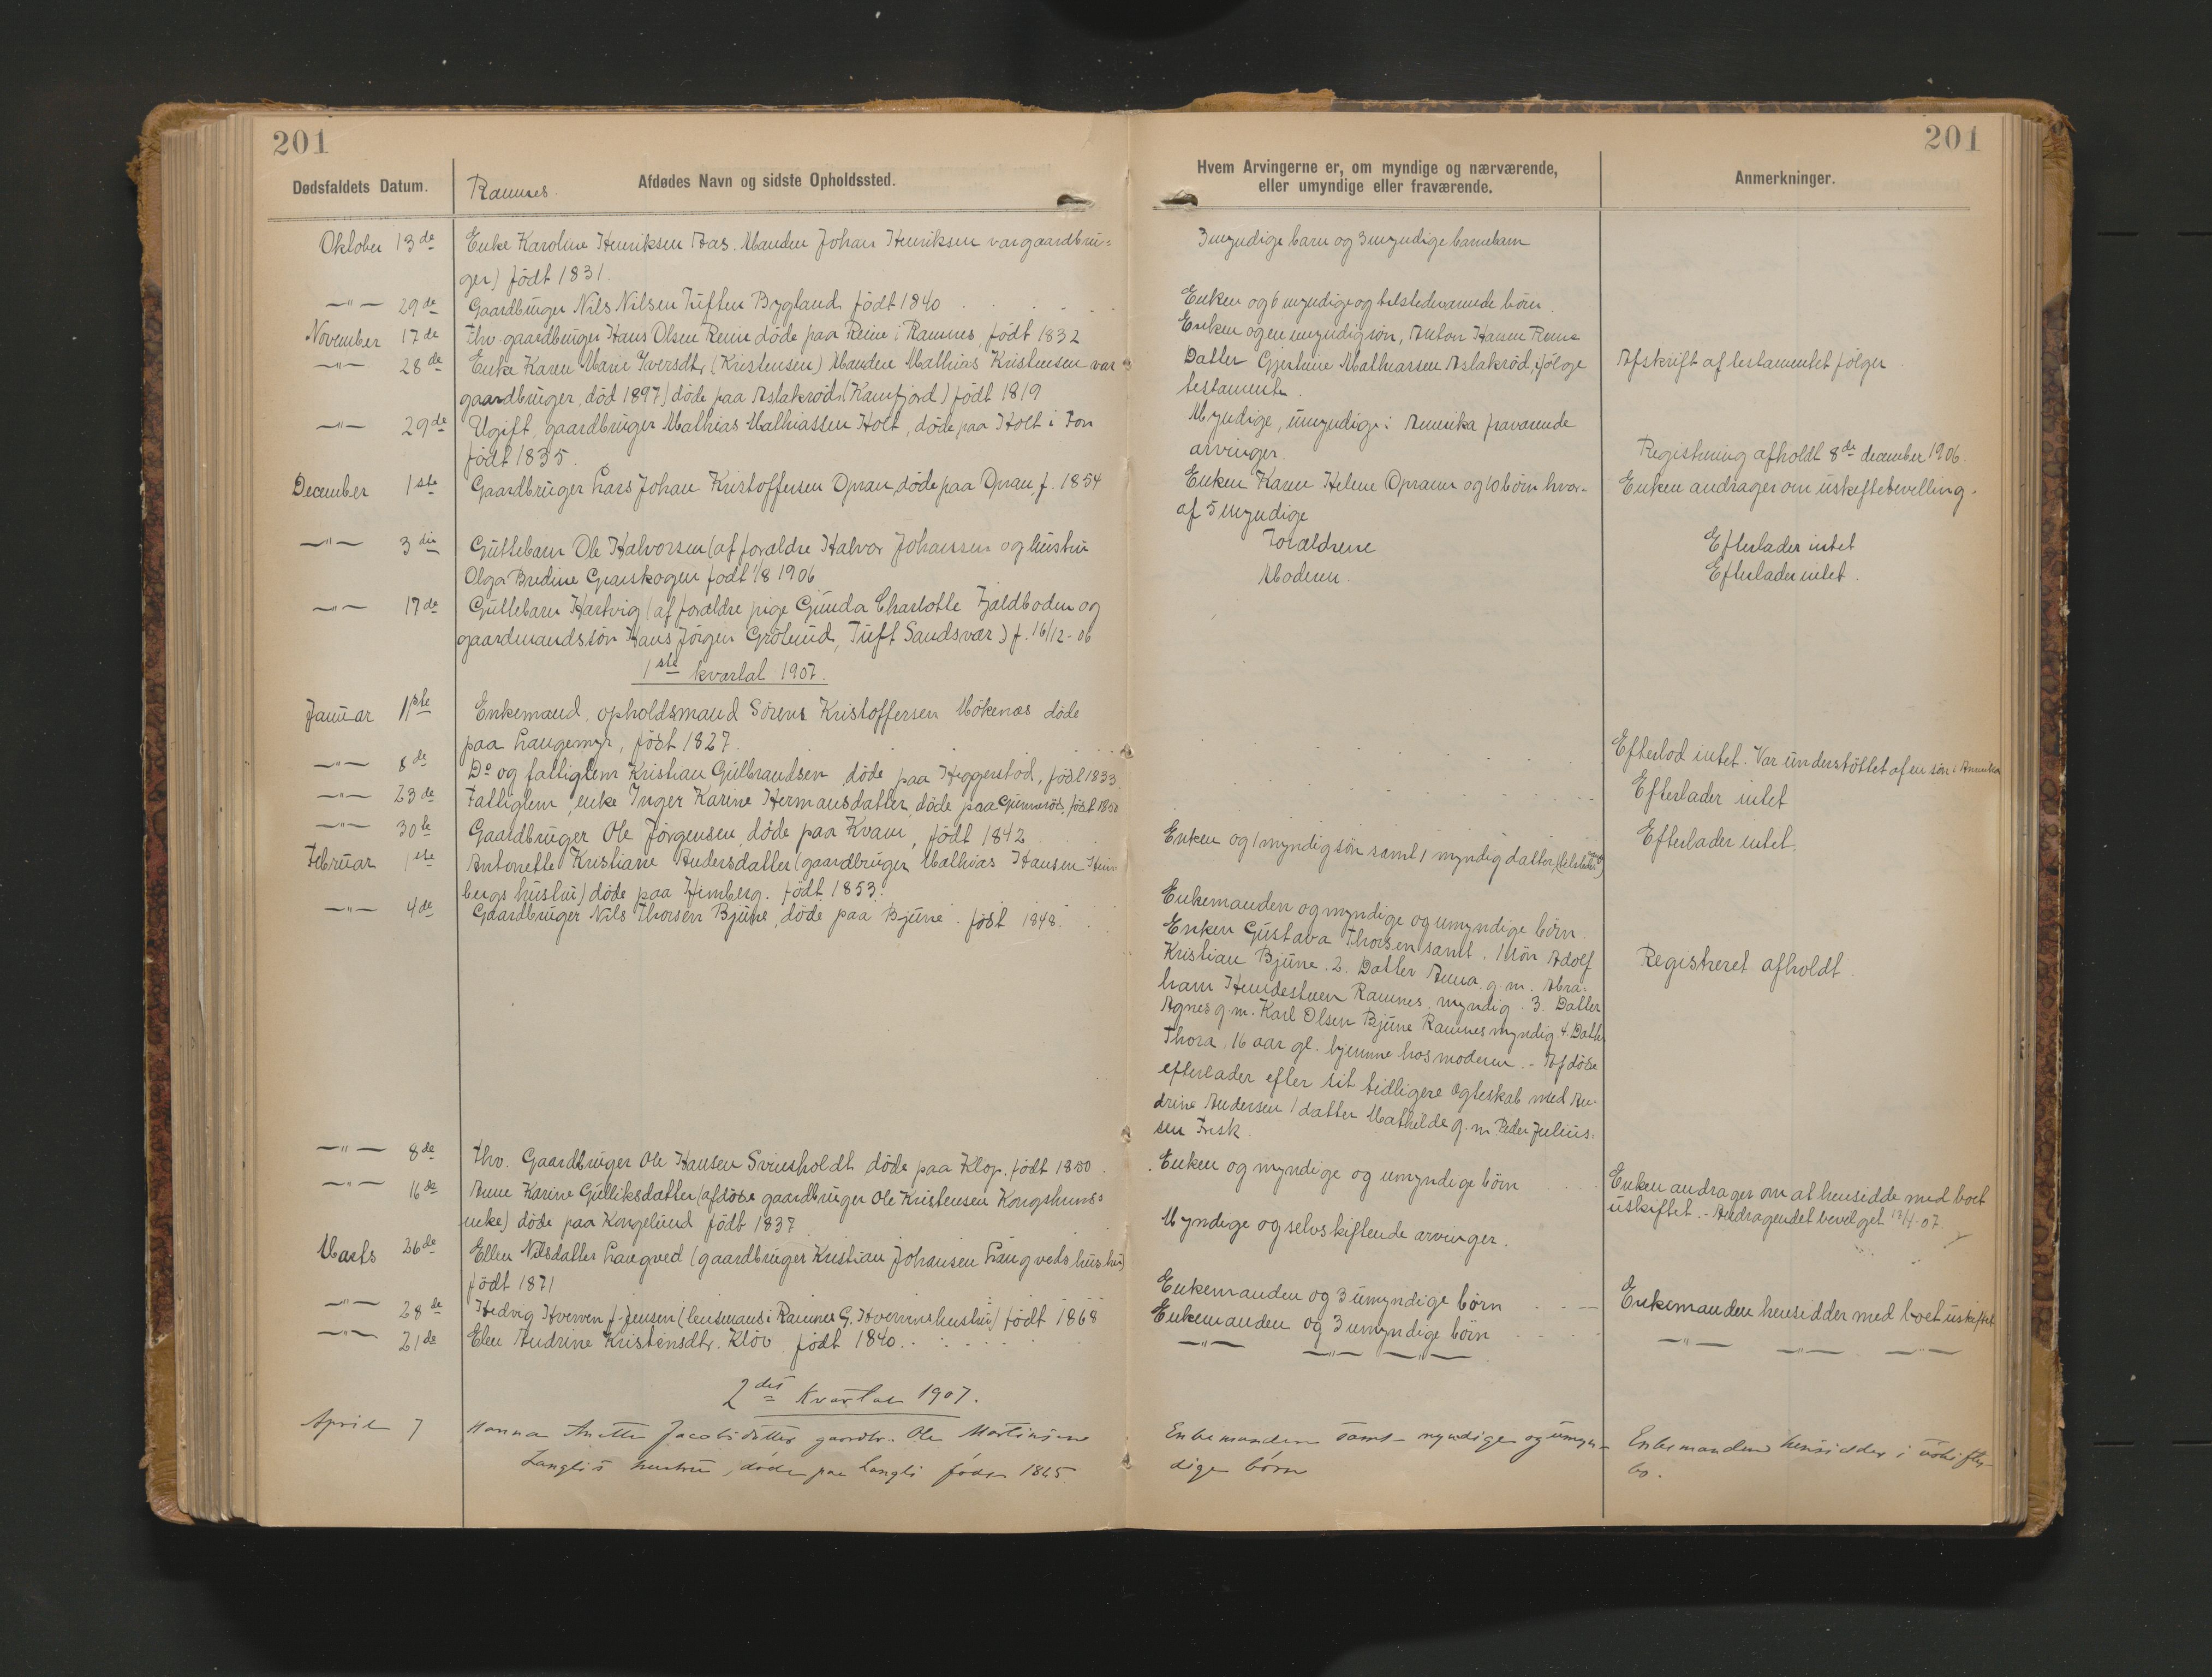 201
201
Dødsfaldets Datum.
Ramnes.
Afdødes Navn og sidste Opholdssted.
Hvem Arvingerne er, om myndige og nærværende,
eller umyndige eller fraværende.
Anmerkninger.
Oktober 13de Enke Karoline Henriksen Aas. Manden Johan Henriksen var gaardbru=
ger) født 1831.
3 myndige barn og 3 myndige barnebarn
—"— 29de Gaardbruger Nils Nilsen Tuften Bygland født 1840
Enken og 6 myndige og tilstedeværende børn.
November 17de fhv. gaardbruger Hans Olsen Reine døde paa Reine i Ramnes, født 1832
Enken og en myndig søn, Anton Hansen Reine
—"— 28de Enke Karen Marie Iversdtr (Kristensen) Manden Mathias Kristensen var
gaardbruger, død 1897) døde paa Aslakrød (Ramfjord) født 1819
Datter Gjertine Mathiassen Aslakrød, ifølge
testamente.
Afskrift af testamentet følger
—"— 29de Ugift, gaardbruger Mathias Mathiassen Holt, døde paa Holt i Fon
født 1835.
Myndige, umyndige i Amerika fraværende
arvinger.
Registrering afholdt 8de december 1906.
December 1ste Gaardbruger Lars Johan Kristoffersen Opran, døde paa Opran, f. 1854
Enken Karen Helene Opraun og 10 børn hvor-
af 5 myndige
Enken andrager om uskiftebevilling.
—"— 3die Guttebarn Ole Halvorsen (af forældre Halvor Johansen og hustru
Olga Bredine Granskogen født 1/8 1906
Forældrene
Efterlader intet
—"— 17de Guttebarn Hartvig (af forældre pige Gunda Charlotte Fjeldboden og
gaardmandssøn Hans Jørgen Grølund, Tuft Sandsvær) f. 16/12-06
Moderen.
Efterlader intet.
1ste kvartal 1907.
Januar 1ste Enkemand, opholdsmand Sørens Kristoffersen Møkenæs døde
paa Langemyr, født 1827.
Efterlod intet. Var understøttet af en søn i Amerika
—"— 8de Do og fattiglem Kristian Gulbrandsen døde paa Heggerstad, født 1833.
Efterlader intet
—"— 23de Fattiglem, enke Inger Karine Hermansdatter, døde paa Gunnerød, født 1850
Efterlader intet.
—"— 30te Gaardbruger Ole Jørgensen, døde paa Kvam, født 1842
Enken og 1 myndig søn samt 1 myndig datter,
Februar 1ste Antonette Kristiane Andersdatter (gaardbruger Mathias Hansen Him
bergs hustru) døde paa Himberg. født 1853.
Enkemanden og myndige og umyndige børn.
—"— 4de Gaardbruger Nils Thorsen Bjune, døde paa Bjune. født 1848.
Enken Gustava Thorsen samt. 1 Søn Adolf
Kristian Bjune. 2. Datter Anna. g. m. Abra=
ham Hundestuen Ramnes, myndig. 3. Datter
Agnes g. m. Karl Olsen Bjune Ramnes myndig. 4. Datter
Thora, 16 aar gl. hjemme hos moderen. - Afdøde
efterlader efter sit tidligere ægteskab med An-
drine Andersen 1 datter Mathilde g. m. Peder Julius=
sen Fresk.
Registreret afholdt.
—"— 8de fhv. Gaardbruger Ole Hansen Svinsholdt døde paa Klop, født 1850.
Enken og myndige og umyndige børn
Enken andrager om at hensidde med boet
uskiftet. - Andragendet bevilget 13/4-07.
—"— 16de Anne Karine Gulliksdatter (afdøde gaardbruger Ole Kristensen Kongshuns=
enke) døde paa Kongelund født 1837
Myndige og selvskiftende arvinger.
Marts 26de Ellen Nilsdatter Langved (gaardbruger Kristian Johansen Langveds hustru)
født 1871
Enkemanden og 3 umyndige børn
Enkemanden hensidder med boet uskiftet
—"— 28de Hedvig Hverven f. Jensen (lensmand i Ramnes G. Hvervens hustru) født 1868
Enkemanden og 3 umyndige børn
—"— —"— —"—
—"— 21de Elen Andrine Kristensdtr. Kløv, født 1840.
—"— —"— —"—
2det Kvartal 1907.
April 7 Hanna Anette Jacobsdatter gaardbr. Ole Martinsens
Langlis hustru, døde paa Langli født 1865
Enkemanden samt myndige og umyn-
dige børn
Enkemanden hensidder i uskiftet
bo.